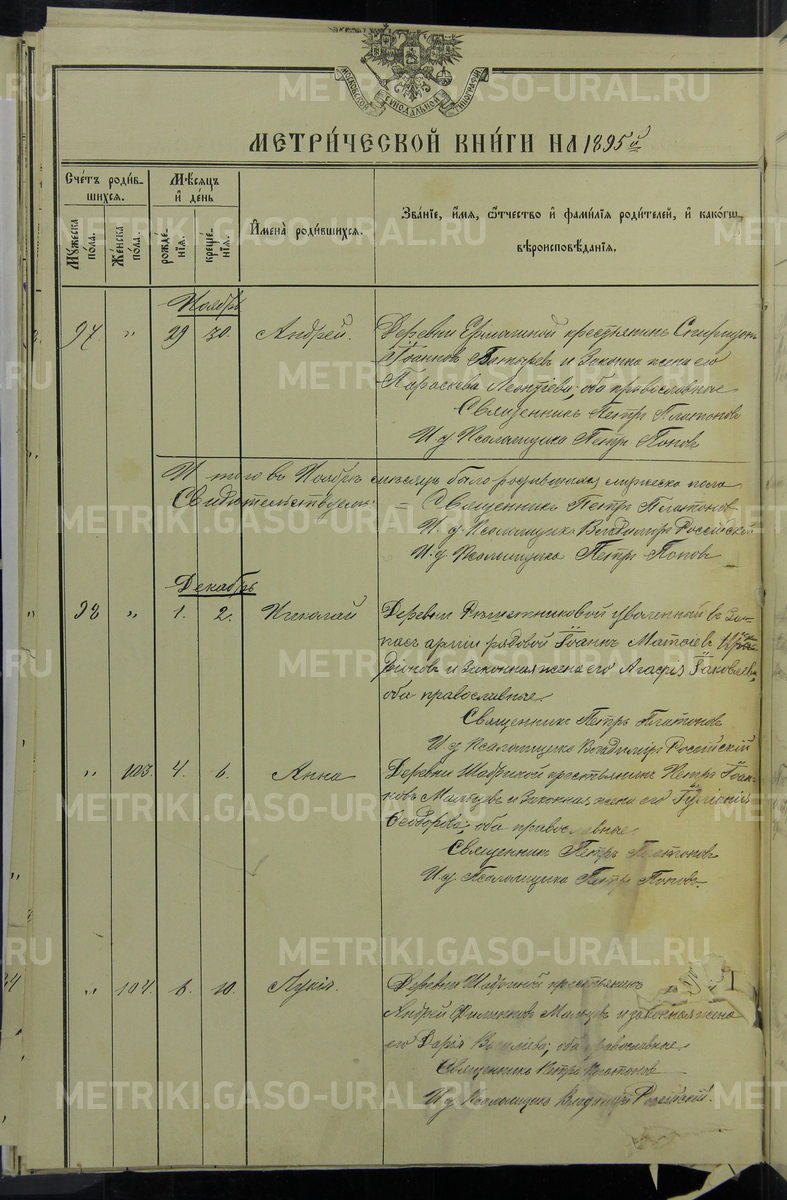 МОСКОВСКОЙ СѴНОДАЛЬНОЙ ТИПОГРАФІИ
МЕТРИ́ЧЕСКОЙ КНИ́ГИ НА 1895й
Счетъ роди́в-
шихся.
Мꙋжеска по́ла.
Же́нска по́ла.
Мѣсяцъ
и де́нь
рожде́-нія.
креще́-нія.
Имена̀ роди́вшихся.
Зва́ніе, и́мя, ѻ́тчество и фами́лія роди́телей, и како́гѡ
вѣроисповѣ́данія.
Ноябрь
97. " 29 30. Андрей. Деревни Ермашной крестьянинъ Спиридонъ
Іоанновъ и законная жена его
Параскева Леонтіева, оба православные
Священникъ Петръ Платоновъ
И. д. Псаломщика Петръ Поповъ
И того въ Ноябрѣ мѣсяцѣ было родившихся мужеска пола
Свидѣтельствуемъ: = Священникъ Петръ Платоновъ
И. д. Псаломщика Владиміръ Россійскій
И. д. Псаломщика Петръ Поповъ
Декабрь
98 " 1. 2. Николай Деревни Рѣшетниковой уволенный въ За-
пасъ арміи рядовой Іоаннъ Матѳіевъ
и законная жена его Агаѳія Іаковлева,
оба православные.
Священникъ Петръ Платоновъ
И. д. Псаломщика Владиміръ Россійскій
" 103. 4. 6. Анна Деревни Шадриной крестьянинъ Петръ Іоан-
новъ Мальцевъ и законная жена его Іуліанія
Ѳеодорова, оба православные.
Священникъ Петръ Платоновъ
И. д. Псаломщика Петръ Поповъ.
" 104. 6. 10. Лукія. Деревни Шадриной крестьянинъ
Андрей Филипповъ Мальцевъ и законная жена
его Дарія Василіева, оба православные
Священникъ Петръ Платоновъ
И. д. Псаломщика Владиміръ Россійскій.
METRIKI.GASO-URAL.RU